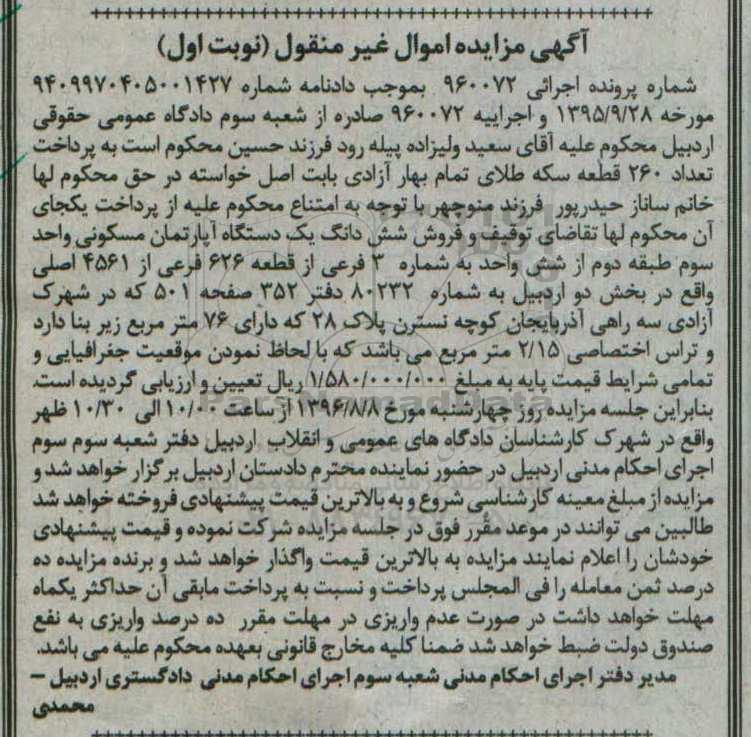 آگهی مزایده اموال غیر منقول (نوبت اول)
شماره پرونده اجرائی ۹۶۰۰۷۲ بموجب دادنامه شماره ۹۴۰۹۹۷۰۴۰۵۰۰۱۴۲۷
مورخه ۱۳۹۵/۹/۲۸ و اجراییه ۹۶۰۰۷۲ صادره از شعبه سوم دادگاه عمومی حقوقی
اردبیل محکوم علیه آقای سعید ولیزاده پیله رود فرزند حسین محکوم است به پرداخت
تعداد ۲۶۰ قطعه سکه طلای تمام بهار آزادی بابت اصل خواسته در حق محکوم لها
خانم ساناز حیدرپور فرزند منوچهر با توجه به امتناع محکوم علیه از پرداخت یکجای
آن محکوم لها تقاضای توقیف و فروش شش دانگ یک دستگاه آپارتمان مسکونی واحد
سوم طبقه دوم از شش واحد به شماره ۳ فرعی از قطعه ۶۲۶ فرعی از ۴۵۶۱ اصلی
واقع در بخش دو اردبیل به شماره ۸۰۲۳۲ دفتر ۳۵۲ صفحه ۵۰۱ که در شهرک
آزادی سه راهی آذربایجان کوچه نسترن پلاک ۲۸ که دارای ۷۶ متر مربع زیر بنا دارد
و تراس اختصاصی ۲/۱۵ متر مربع می باشد که با لحاظ نمودن موقعیت جغرافیایی و
تمامی شرایط قیمت پایه به مبلغ ۱/۵۸۰/۰۰۰/۰۰۰ ریال تعیین و ارزیابی گردیده است.
بنابراین جلسه مزایده روز چهارشنبه مورخ ۱۳۹۶/۸/۸ از ساعت ۱۰/۰۰ الی ۱۰/۳۰ ظهر
واقع در شهرک کارشناسان دادگاه های عمومی و انقلاب اردبیل دفتر شعبه سوم سوم
اجرای احکام مدنی اردبیل در حضور نماینده محترم دادستان اردبیل برگزار خواهد شد و
مزایده از مبلغ معینه کارشناسی شروع و به بالاترین قیمت پیشنهادی فروخته خواهد شد
طالبین می توانند در موعد مقرر فوق در جلسه مزایده شرکت نموده و قیمت پیشنهادی
خودشان را اعلام نمایند مزایده به بالاترین قیمت واگذار خواهد شد و برنده مزایده ده
درصد ثمن معامله را فی المجلس پرداخت و نسبت به پرداخت مابقی آن حداکثر یکماه
مهلت خواهد داشت در صورت عدم واریزی در مهلت مقرر ده درصد واریزی به نفع
صندوق دولت ضبط خواهد شد ضمنا کلیه مخارج قانونی بعهده محکوم علیه می باشد.
مدیر دفتر اجرای احکام مدنی شعبه سوم اجرای احکام مدنی دادگستری اردبیل –
محمدی
ParsNamadData